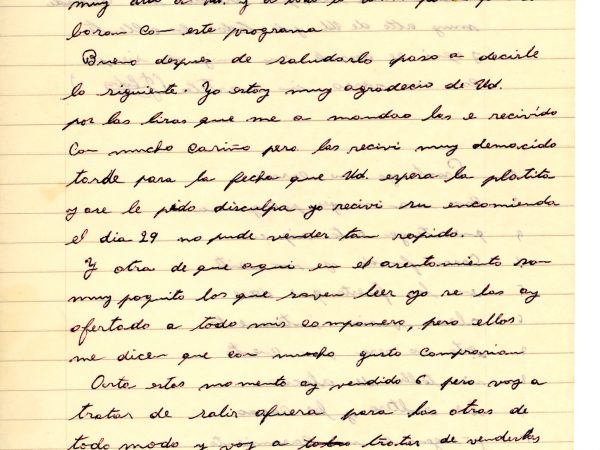 boran con este programa
Bueno despues de saludarlo paso a decirle
lo siguiente. Yo estoy muy agradecio de Ud.
por las liras que me a mandao las e recivido
Con mucho cariño pero las recivi muy demacido
tarde para la fecha que Ud. espera la platita
y are le pido disculpa yo recivi su encomienda
el dia 29 no pude vender tan rapido.
Y otra de que aqui en el asentamiento son
muy poquito los que saven leer yo se las ay
ofertado a todo mis companero, pero ellos
me dicen que con mucho gusto Comprarian
Asta estes momento ay vendido 6 pero voy a
tratar de salir afuera para las otras de
todo modo y voy a tratar de venderlas